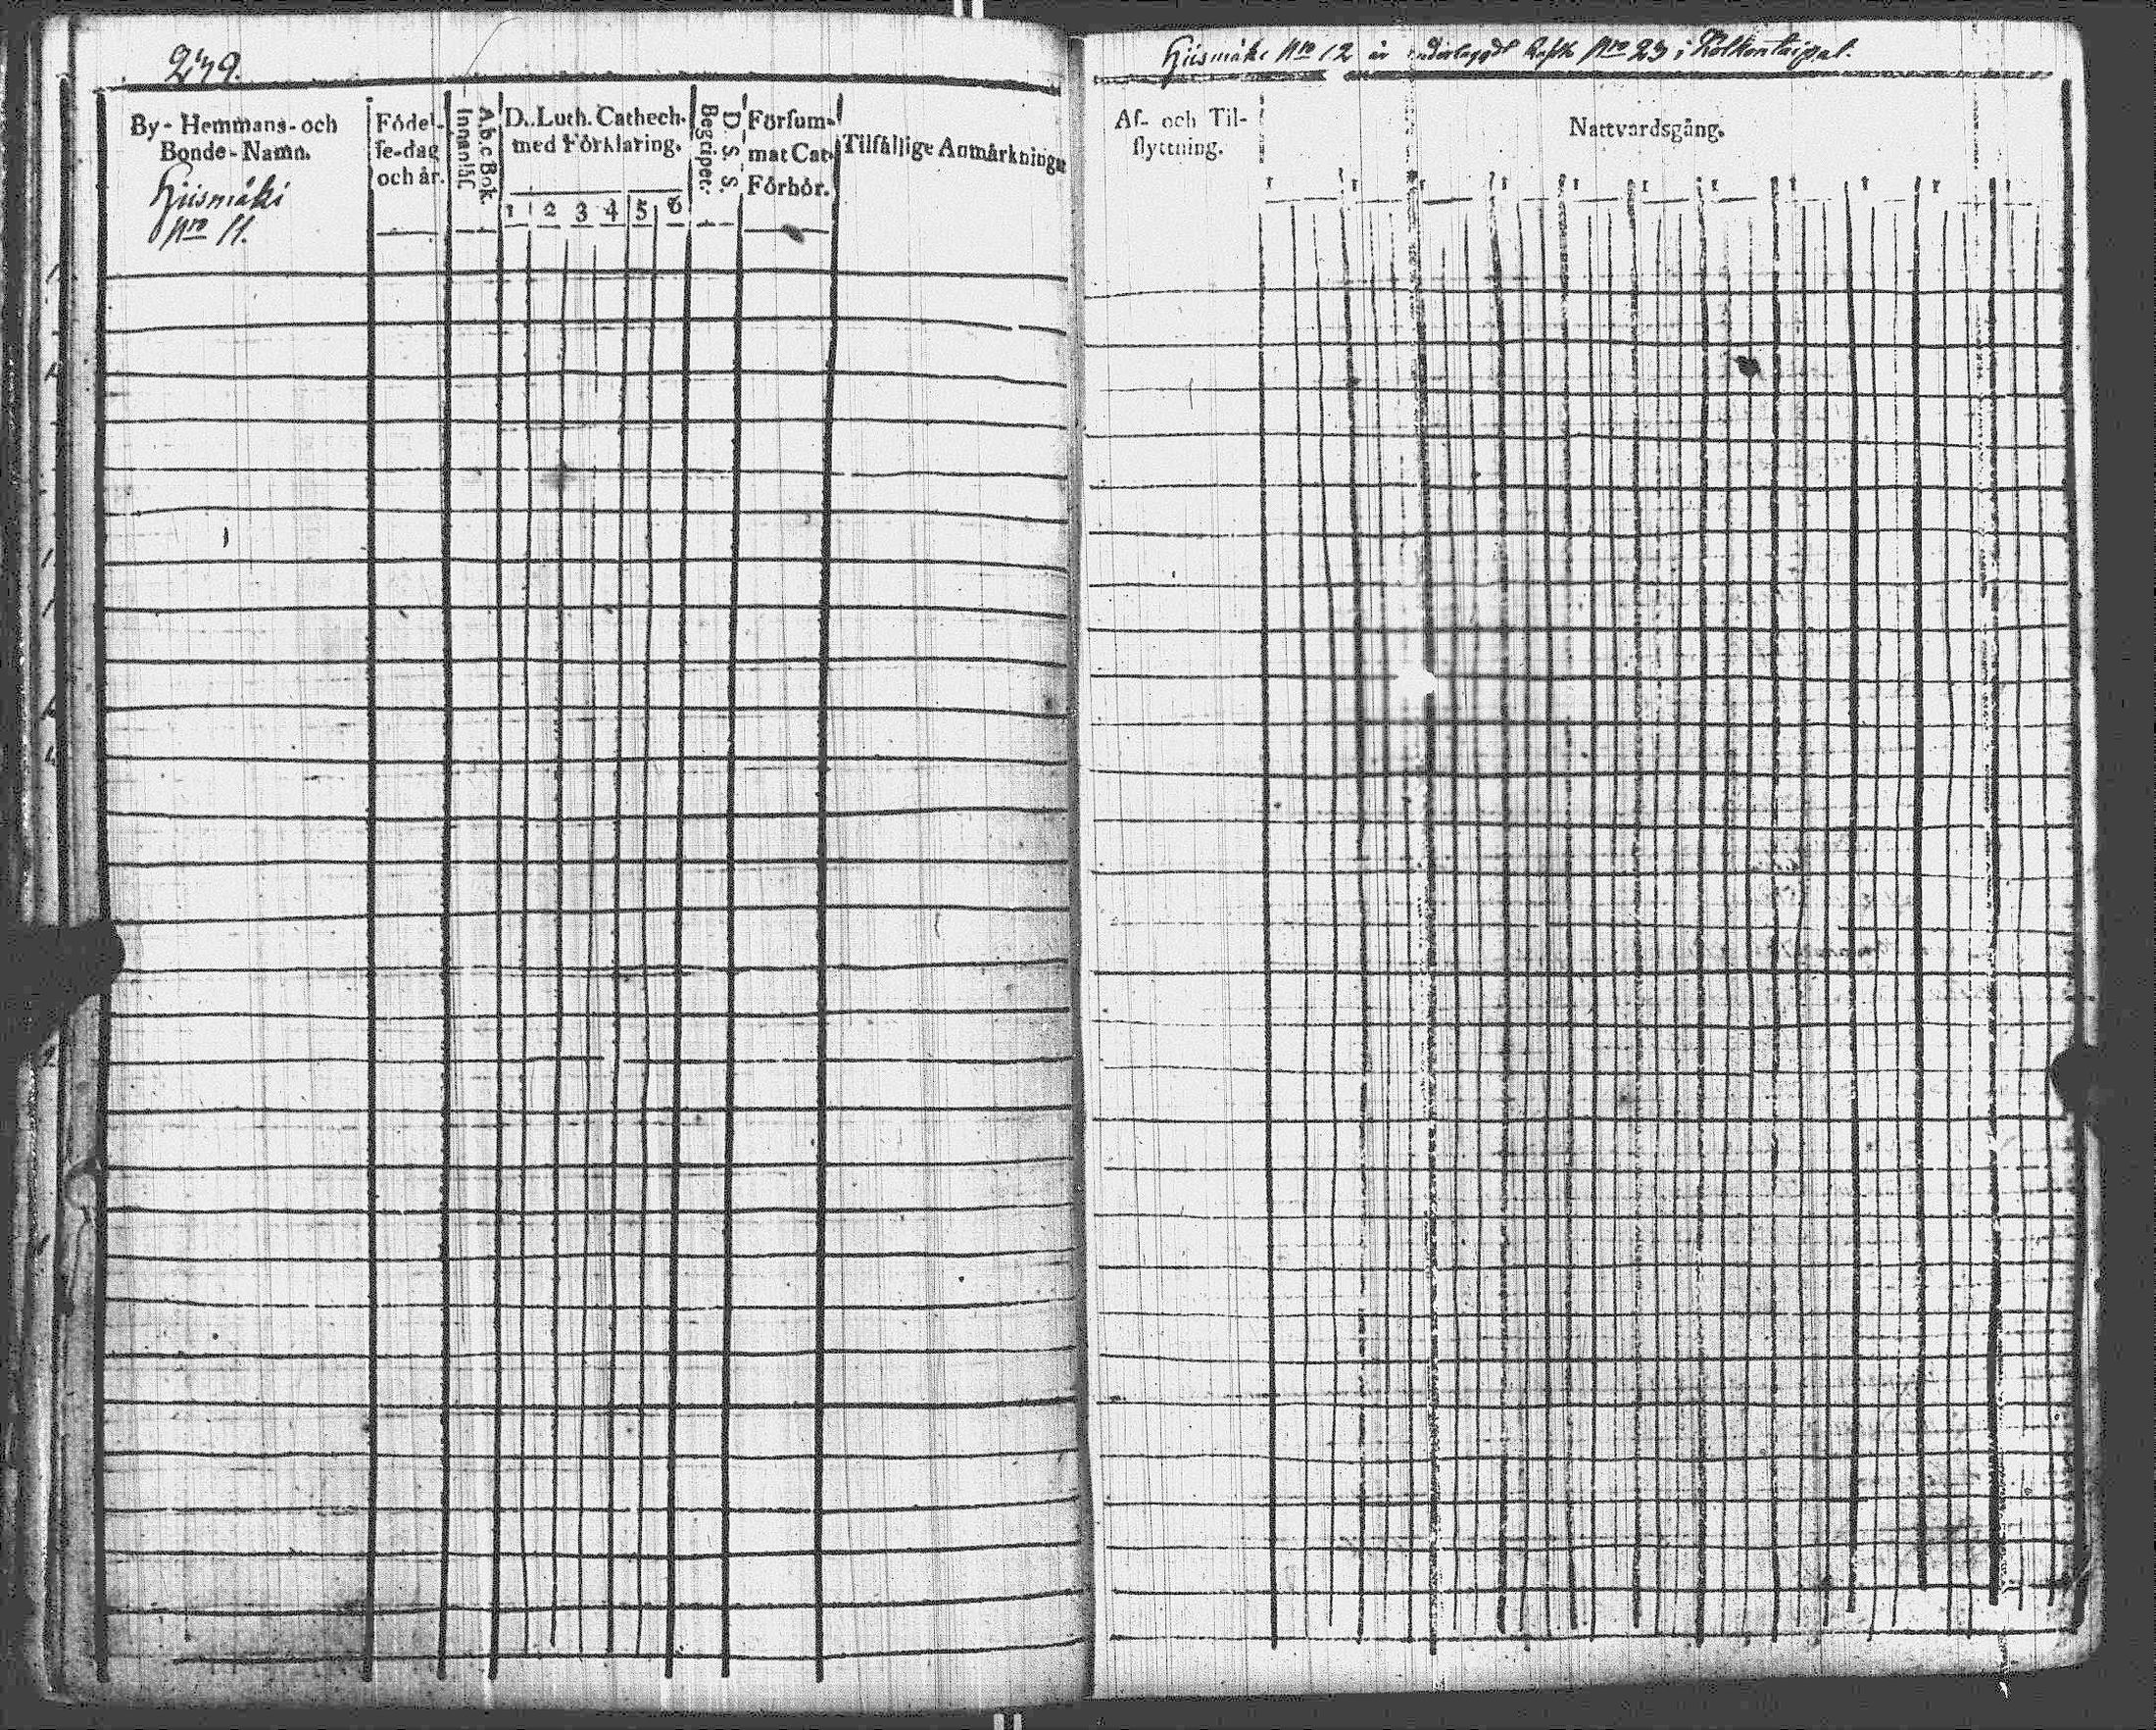 249.
By- Hemmans- och
Bonde-Namn.
Hiismäki
Nro 11.
Födel-
se-dag
och år.
A.b.c Bok.
Innanläs.
D. Luth. Cathech.
med Förklaring.
1 2 3 4 5 6
D. S. S. S.
Begriper.
Försum-
mat Cat.
Förhör.
Tilfällige Anmärkningar
Hiismäki Nro 12 är Nro 23 i
Af- och Til-
flyttning.
Nattvardsgång.